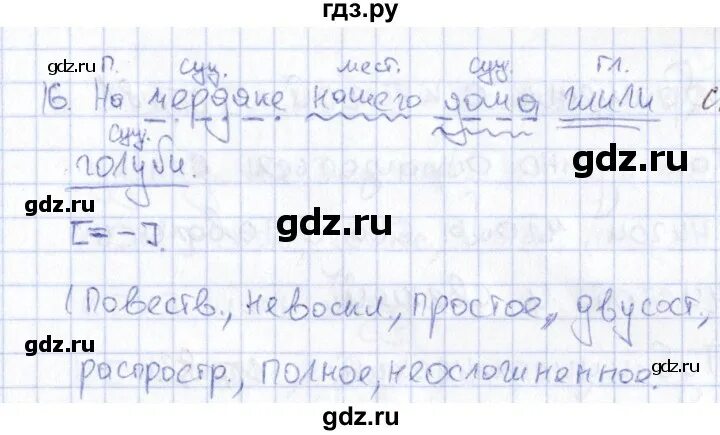 гдз.ру
gdz.ru П. сущ. мест. сущ. гл.
16. На чердаке нашего дома жили
сущ.
голуби.
gdz.ru gdz.ru gdz.ru
[= –].
(Повеств., невоскл., простое, двусост.,
gdz.ru
распростр., полное, неосложненное.
gdz.ru
gdz.ru